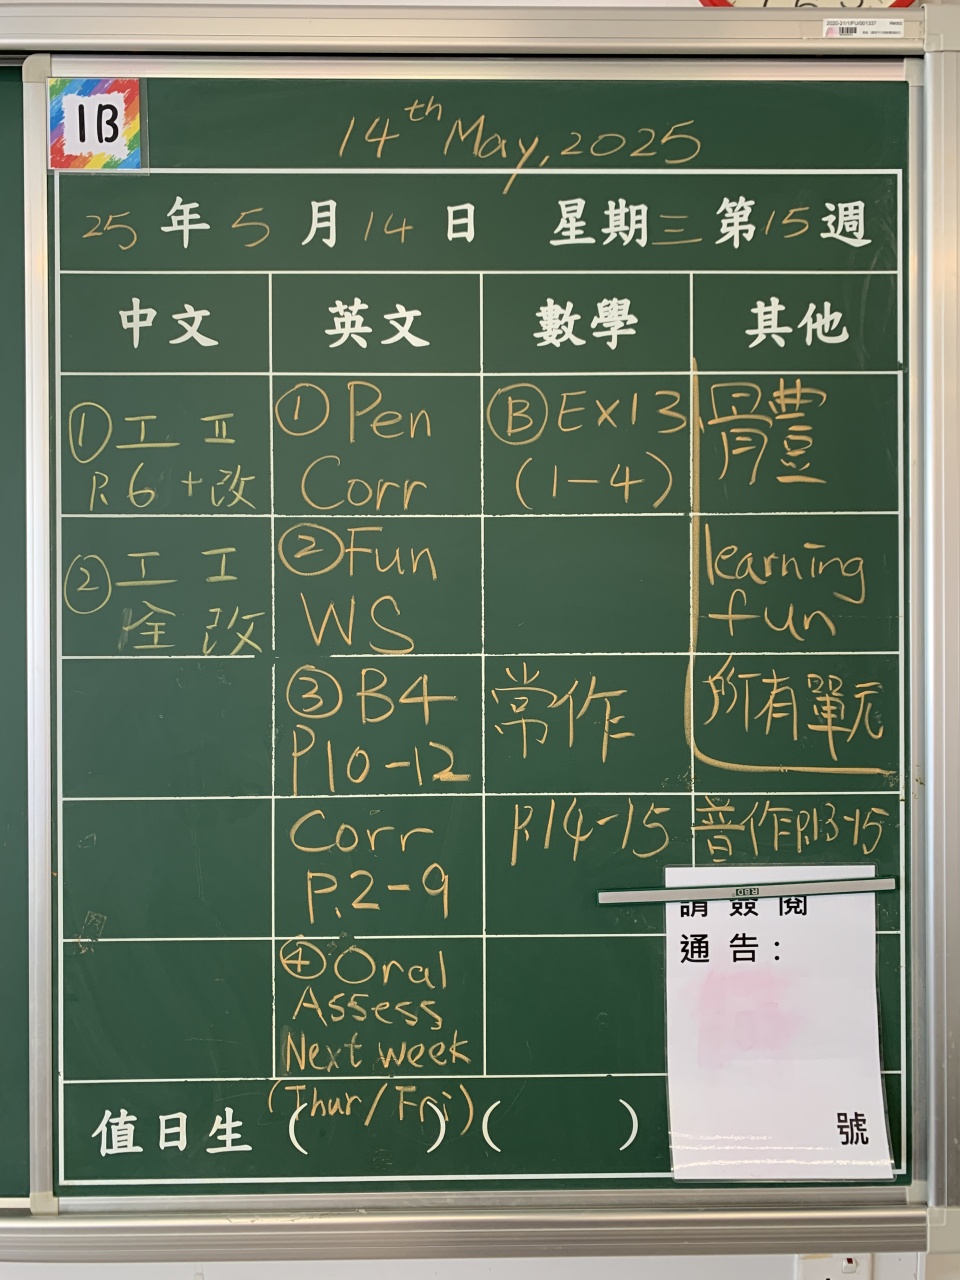 2020-21/1/FU/001337
1B
14th May, 2025
25 年 5 月 14 日 星期三 第 15 週
中文 英文 數學 其他
① 工 II
P.6 + 改
② 工 工
全 改
① Pen
Corr
② Fun
WS
③ B4
P10-12
Corr
P.2-9
④ Oral
Assess
Next week
(Thur/Fri)
Ⓑ Ex13
(1-4)
常作
P.14-15
體
learning
fun
所有單元
音作P.13-15
RBD
請簽閱
通告:
號
值日生 ( ) ( )